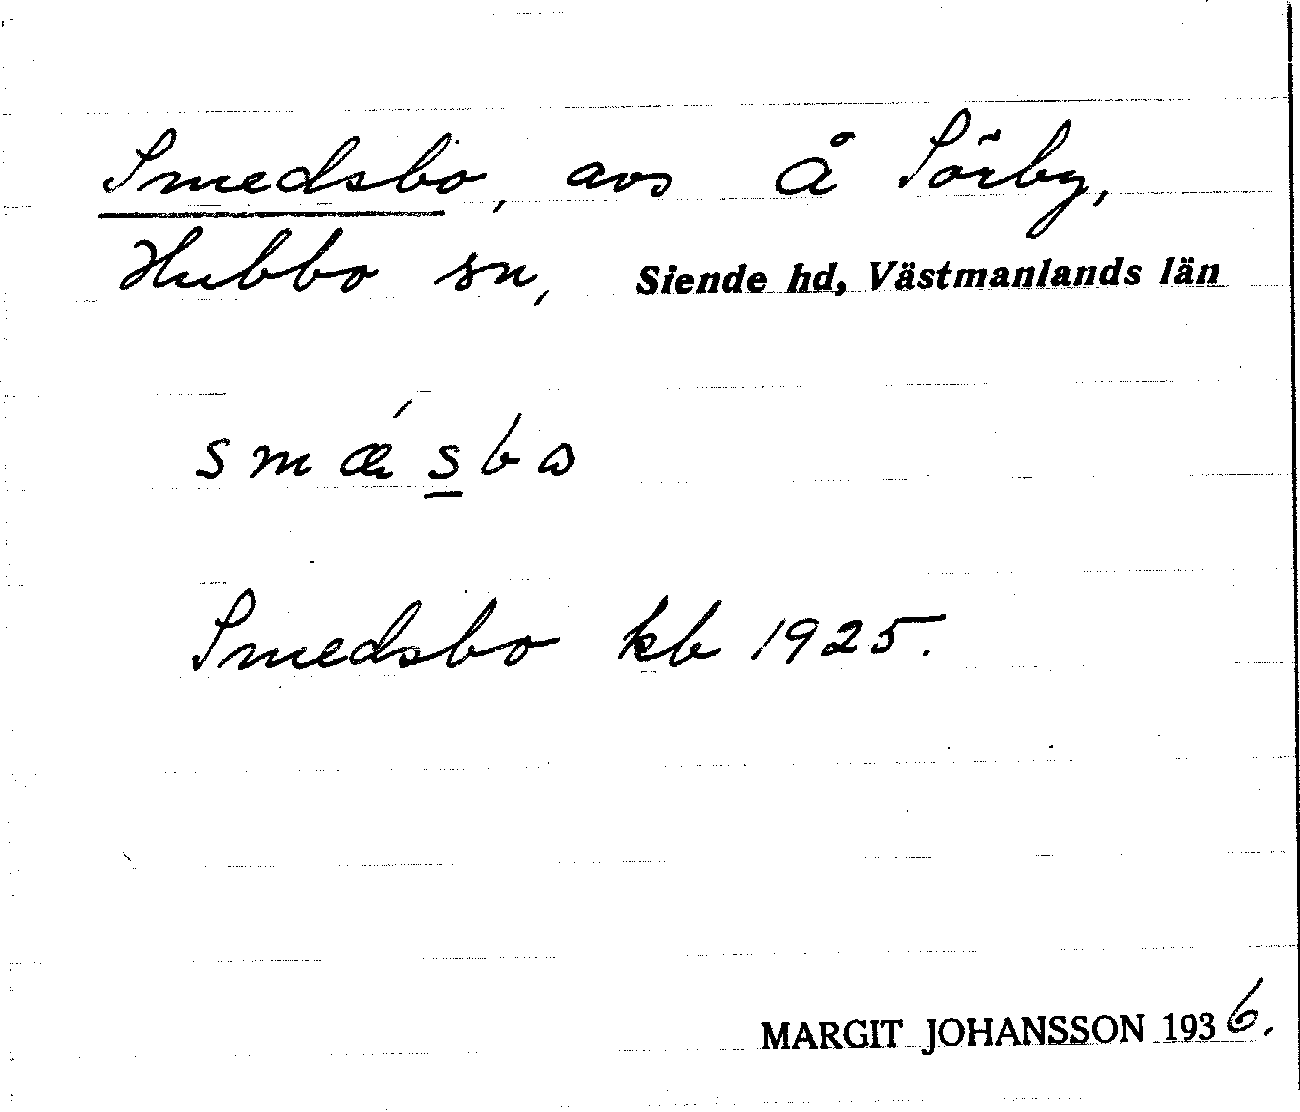 Smedsbo, avs å Sörby,
Hubbo sn, Siende hd, Västmanlands län
smæ´sbω
Smedsbo kb 1925.
MARGIT JOHANSSON 1936.